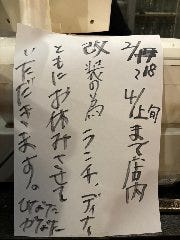 2/18 4/上旬まで店内
改装の為 ランチ、ディナー
ともにお休みさせて
いただきます。
ひなた
かなた